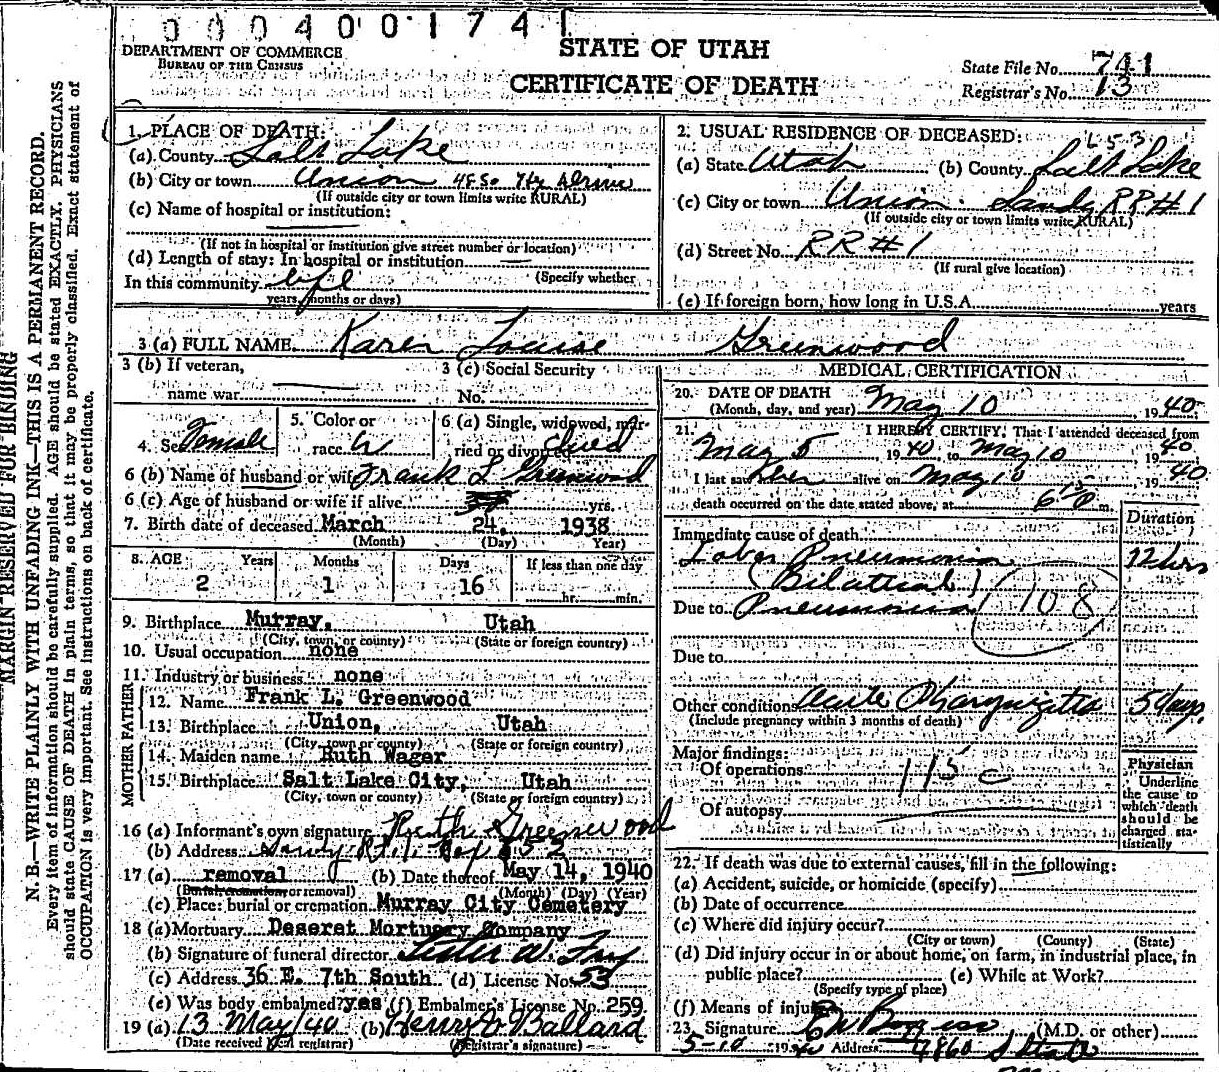 0004001741
DEPARTMENT OF COMMERCE
BUREAU OF THE CENSUS
STATE OF UTAH
CERTIFICATE OF DEATH
State File No. 741
Registrar's No. 13
MARGIN RESERVED FOR BINDING
N. B.—WRITE PLAINLY WITH UNFADING INK—THIS IS A PERMANENT RECORD.
Every item of information should be carefully supplied. AGE should be stated EXACTLY. PHYSICIANS
should state CAUSE OF DEATH in plain terms, so that it may be properly classified. Exact statement of
OCCUPATION is very important. See instructions on back of certificate.
1. PLACE OF DEATH:
(a) County Salt Lake
(b) City or town Union 4850
(If outside city or town limits write RURAL)
(c) Name of hospital or institution:
(If not in hospital or institution give street number or location)
(d) Length of stay: In hospital or institution —
(Specify whether
In this community life
years, months or days)
2. USUAL RESIDENCE OF DECEASED: L53
(a) State Utah (b) County Salt Lake
(c) City or town Union. Sandy RR#1
(If outside city or town limits write RURAL)
(d) Street No. RR#1
(If rural give location)
(e) If foreign born, how long in U.S.A. years
3 (a) FULL NAME Karen Louise Greenwood
3 (b) If veteran,
name war
3 (c) Social Security
No.
4. Sex Female
5. Color or
race W
6 (a) Single, widowed, mar-
ried or divorced
6 (b) Name of husband or wife Frank L Greenwood
6 (c) Age of husband or wife if alive yrs.
7. Birth date of deceased March 24, 1938
(Month) (Day) Year)
8. AGE Years Months Days If less than one day
2 1 16 hr. min.
9. Birthplace Murray, Utah
(City, town, or county) (State or foreign country)
10. Usual occupation none
11. Industry or business none
FATHER
12. Name Frank L. Greenwood
13. Birthplace Union, Utah
(City, town or county) (State or foreign country)
MOTHER
14. Maiden name Ruth Wager
15. Birthplace Salt Lake City, Utah
(City, town or county) (State or foreign country)
16 (a) Informant's own signature Ruth Greenwood
(b) Address Sandy R.1. Box 252
17 (a) removal (b) Date thereof May 14, 1940
(Burial cremation or removal) (Month) (Day) (Year)
(c) Place: burial or cremation Murray City Cemetery
18 (a) Mortuary Deseret Mortuary Company
(b) Signature of funeral director
(c) Address 36 E. 7th South (d) License No. 53
(e) Was body embalmed? yes (f) Embalmer's License No. 259
19 (a) 13 May/40 (b) Henry Ballard
(Date received local registrar) (Registrar's signature)
MEDICAL CERTIFICATION
20. DATE OF DEATH
(Month, day, and year) May 10, 1940
21. I HEREBY CERTIFY, That I attended deceased from
May 5, 1940, to May 10, 1940
I last saw her alive on May 10, 1940
death occurred on the date stated above, at m.
Duration
Immediate cause of death
Lobar Pneumonia 12 hrs
(Bilatual)
Due to Pneumonia 108
Due to
Other conditions Acute Pharyngitis 5 days.
(Include pregnancy within 3 months of death)
Major findings:
Of operations 115 c
Of autopsy
Physician
Underline
the cause to
which death
should be
charged sta-
tistically
22. If death was due to external causes, fill in the following:
(a) Accident, suicide, or homicide (specify)
(b) Date of occurrence
(c) Where did injury occur?
(City or town) (County) (State)
(d) Did injury occur in or about home, on farm, in industrial place, in
public place? (e) While at Work?
(Specify type of place)
(f) Means of injury
23. Signature (M.D. or other)
5-10 1940 Address 4860 S State